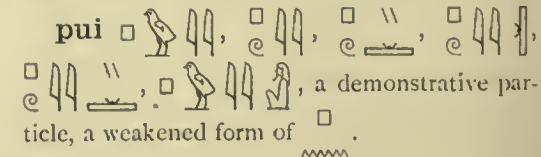 pui 𓊪𓅱𓇋𓇋, 𓊪𓏲𓇋𓇋, 𓊪𓏲𓏭𓏛, 𓊪𓏲𓇋𓇋𓏜,
𓊪𓏲𓇋𓇋𓏭𓏛, 𓊪𓅱𓇋𓇋𓀭, a demonstrative par-
ticle, a weakened form of 𓊪𓈖.